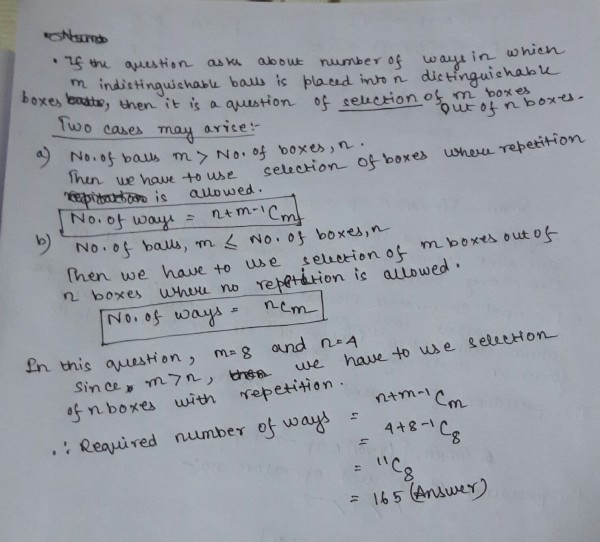 • If the question asks about number of ways in which
m indistinguishable balls is placed into n distinguishable
boxes, then it is a question of selection of m boxes
out of n boxes.
Two cases may arise:-
a) No. of balls m > No. of boxes, n.
Then we have to use selection of boxes where repetition
is allowed.
No. of ways = n+m-1Cm
b) No. of balls, m ≤ No. of boxes, n
Then we have to use selection of m boxes out of
n boxes where no repetition is allowed.
No. of ways = nCm
In this question, m=8 and n=4
Since, m>n, we have to use selection
of n boxes with repetition.
∴ Required number of ways = n+m-1Cm
= 4+8-1C8
= 11C8
= 165 (Answer)